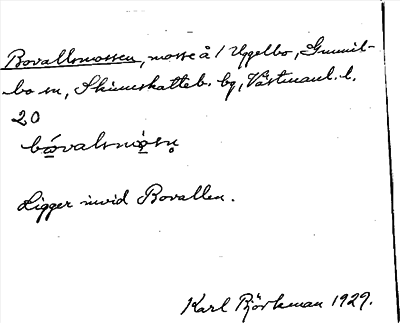 Bovallsmossen, mosse å / Uggelbo, Gunnil-
bo sn, Skinnskatteb. bg, Västmanl. l.
20
Ligger invid Bovallen.
Karl Björkman 1929.